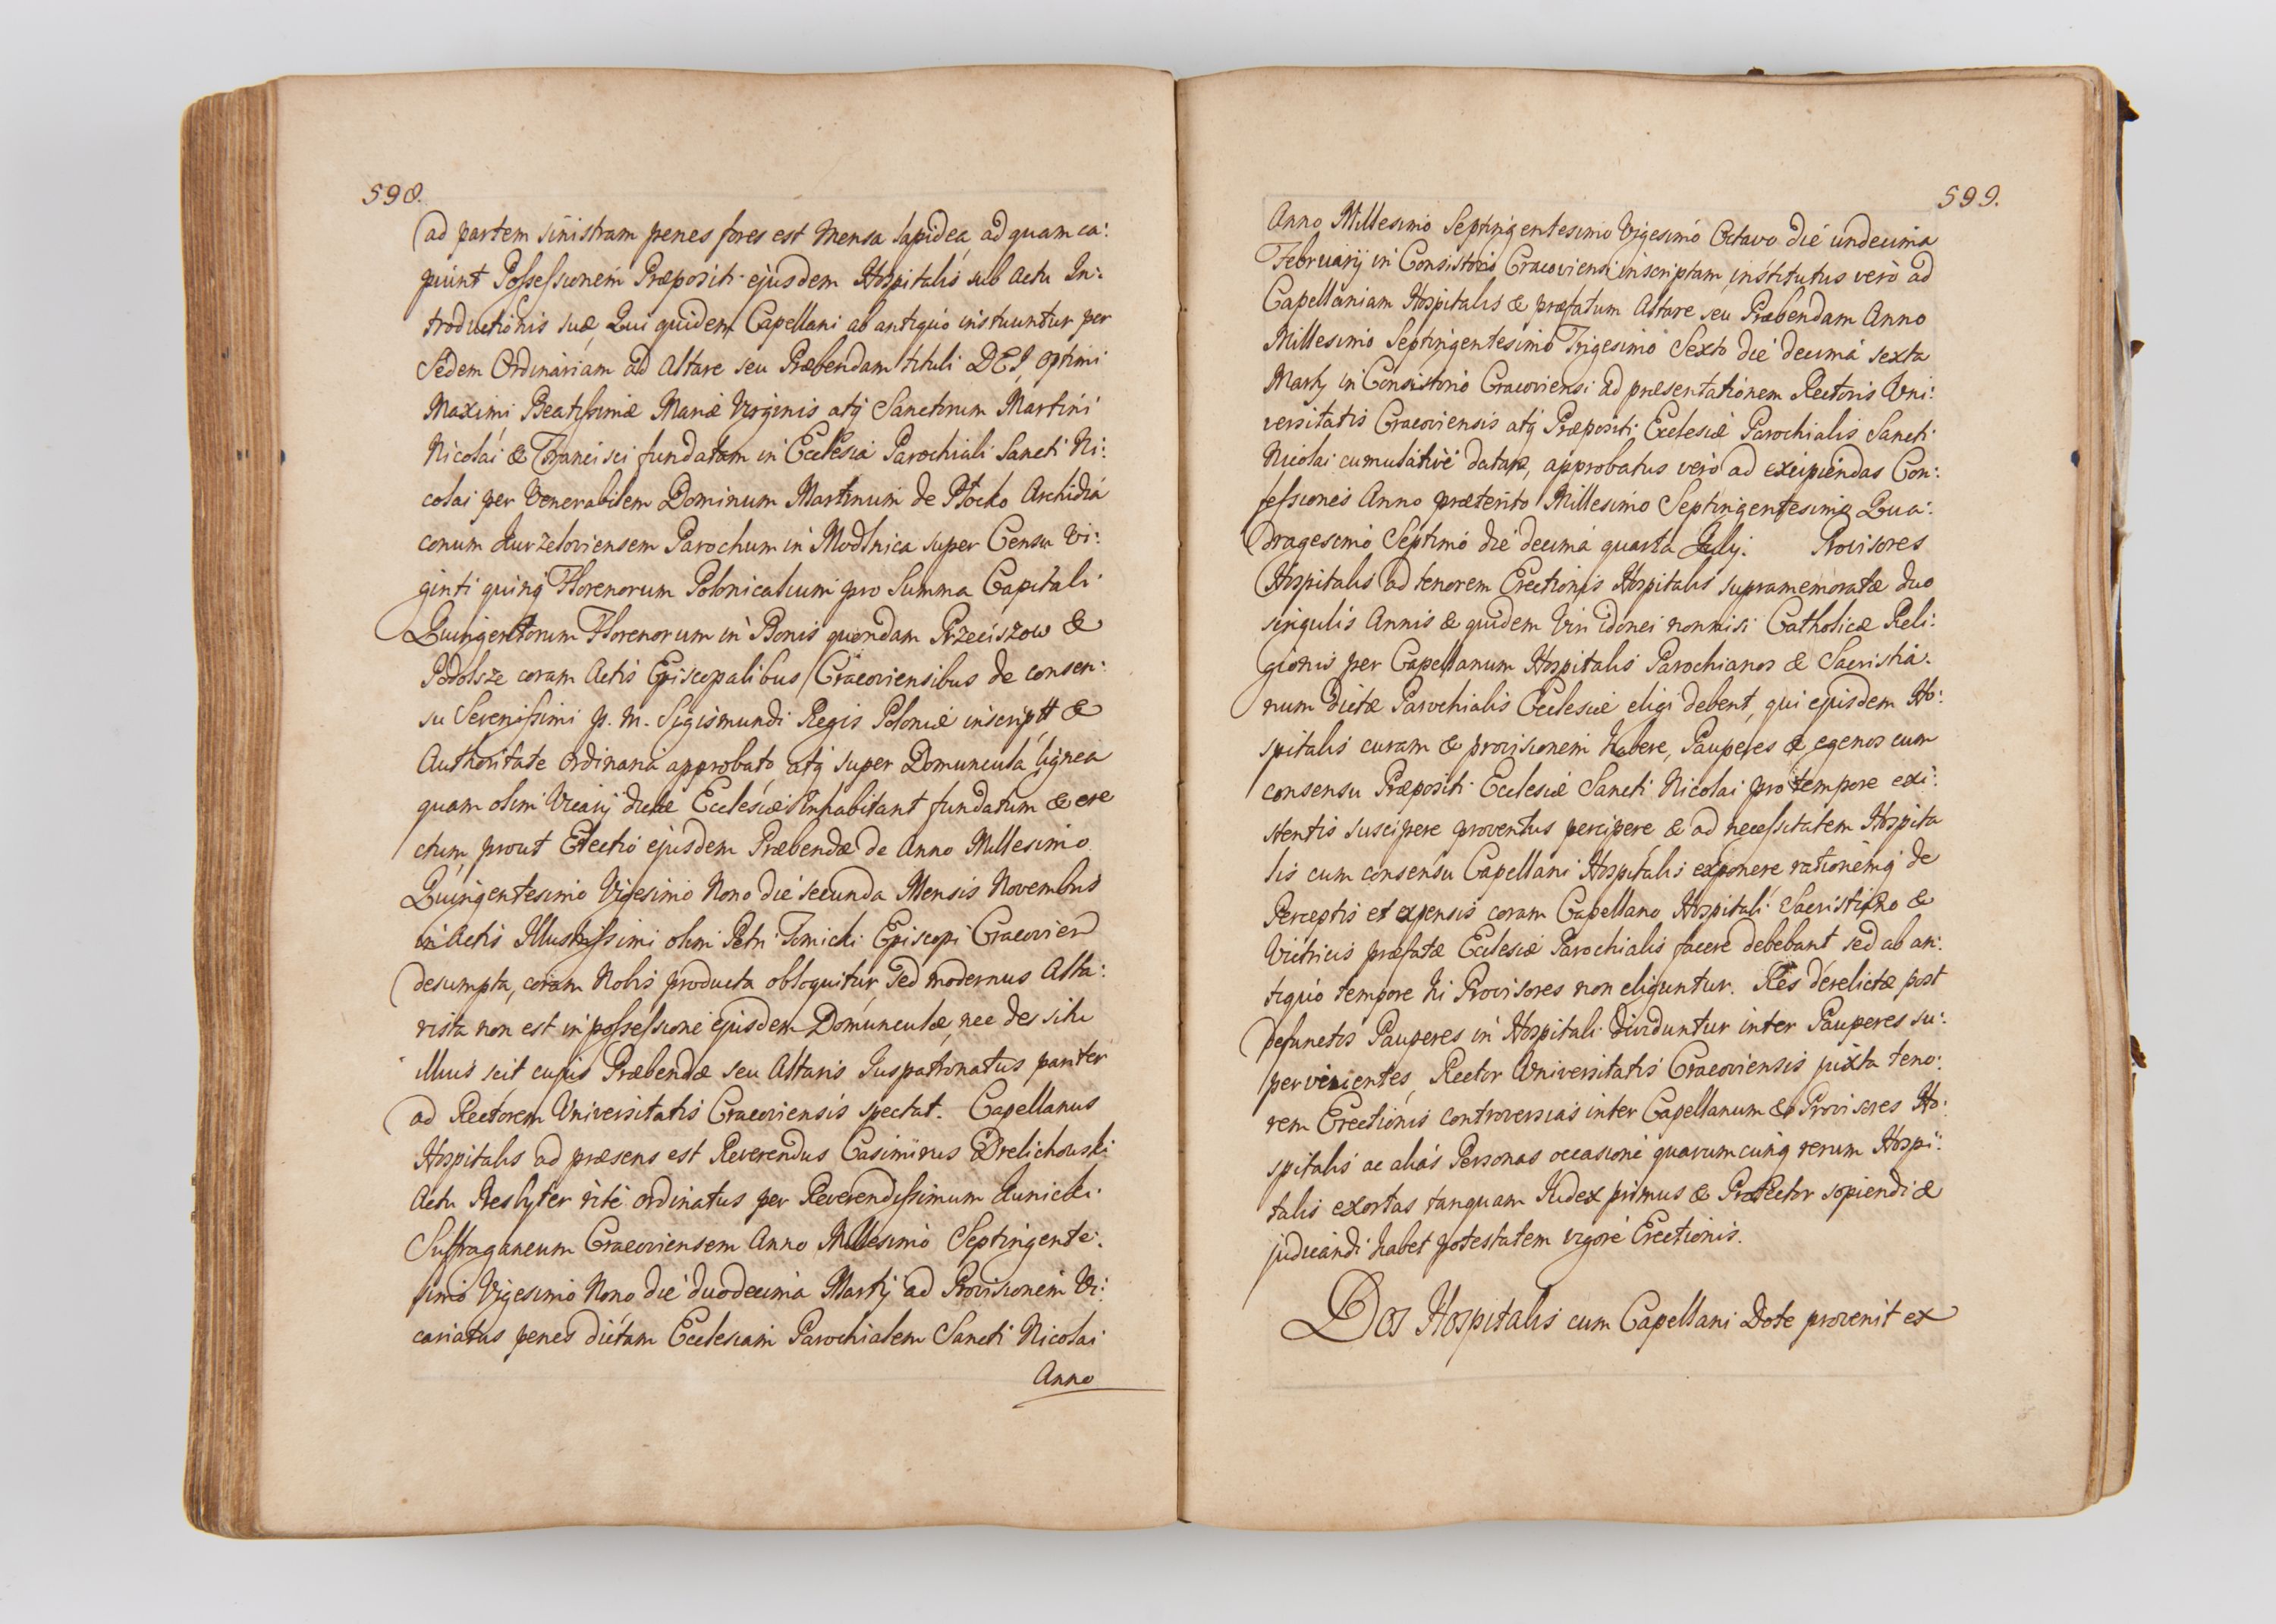 598.
ad partem sinistram penes fores est Mensa lapidea, ad quam ca:
piunt Possessionem Præpositi ejusdem Hospitalis sub actu In:
troductionis suæ, Qui quidem Capellani ab antiquo instuuntur per
Sedem Ordinariam ad Altare seu Præbendam tituli DEI, optimi
Maximi, Beatissimæ Mariæ Virginis atq Sanctorum Martini
Nicolai & Francisci fundatam in Ecclesia Parochiali Sancti Ni:
colai per Venerabilem Dominum Martinum de Płocko Archidia
conum Kurzeloviensem Parochum in Modlnica super Censu Vi:
ginti quinq Florenorum Polonicalium pro Summa Capitali
Quingentorum Florenorum in Bonis quondam Przeciszow &
Podolsze coram Actis Episcopalibus Cracoviensibus de consen:
su Serenissimi p. m. Sigismundi Regis Poloniæ inscript &
Authoritate Ordinaria approbato, atq super Domuncula lignea
quam olim Vicarij dictæ Ecclesiæ Inhabitant fundatum & ere
ctum, prout Erectio ejusdem Præbendæ de Anno Millesimo
Quingentesimo Vigesimo Nono die secunda Mensis Novembris
in Actis Illustrissimi olim Petri Tomicki Episcopi Cracovien
desumpta, coram Nobis producta obloquitur, sed modernus Alta:
rista non est in possessione ejusdem Domunculæ, nec de situ
illius scit cujus Præbendæ seu Altaris Juspatronatus pariter
ad Rectorem Universitatis Cracoviensis spectat. Capellanus
Hospitalis ad præsens est Reverendus Casimirus Drelichowski
Actu Presbyter ritè ordinatus per Reverendissimum Kunicki
Suffraganeum Cracoviensem Anno Millesimo Septingente:
simo Vigesimo Nono die duodecima Martij ad Provisionem Vi:
cariatus penes dictam Ecclesiam Parochialem Sancti Nicolai
Anno
599.
Anno Millesimo Septingentesimo Vigesimo Octavo die undecima
Februarij in Consistorio Cracoviensi inscriptam, institutus verò ad
Capellaniam Hospitalis & præfatum Altare seu Præbendam Anno
Millesimo Septingentesimo Trigesimo Sexto die decima sexta
Martij in Consistorio Cracoviensi ad præsentationem Rectoris Uni:
versitatis Cracoviensis atq Præpositi Ecclesiæ Parochialis Sancti
Nicolai cumulativè datam, approbatus verò ad excipiendas Con:
fessiones Anno præterito Millesimo Septingentesimo Qua:
dragesimo Septimo die decima quarta July. Provisores
Hospitalis ad tenorem Erectionis Hospitalis supramemoratæ duo
singulis Annis & quidem Viri idonei nonnisi Catholicæ Reli:
gionis per Capellanum Hospitalis Parochianos & Sacristia:
num dictæ Parochialis Ecclesiæ eligi debent, qui ejusdem Ho:
spitalis curam & provisionem habere, Pauperes & egenos cum
consensu Præpositi Ecclesiæ Sancti Nicolai pro tempore exi:
stentis suscipere proventus percipere & ad necessitatem Hospita
lis cum consensu Capellani Hospitalis exponere rationemq de
Perceptis et expensis coram Capellano Hospitali Sacristiano &
Vitricis præfatæ Ecclesiæ Parochialis facere debebant sed ab an:
tiquo tempore hi Provisores non eliguntur. Res derelictæ post
defunctos Pauperes in Hospitali dividuntur inter Pauperes su:
pervenientes, Rector Universitatis Cracoviensis juxta teno:
rem Erectionis controversias inter Capellanum & Provisores Ho:
spitalis ac alias Personas occasione quarumcunq rerum Hospi:
talis exortas tanquam Judex primus & Protector sopiendi &
judicandi habet potestatem vigore Erectionis.
Dos Hospitalis cum Capellani Dote provenit ex